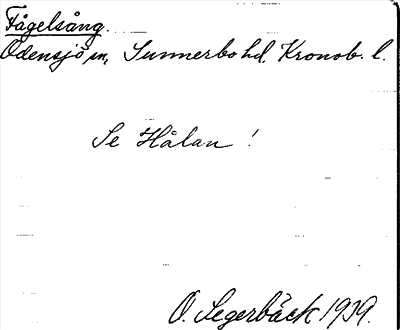 Fågelsång.
Odensjö sn, Sunnerbo hd. Kronob. l.
Se Hålan!
O. Segerbäck 1939.